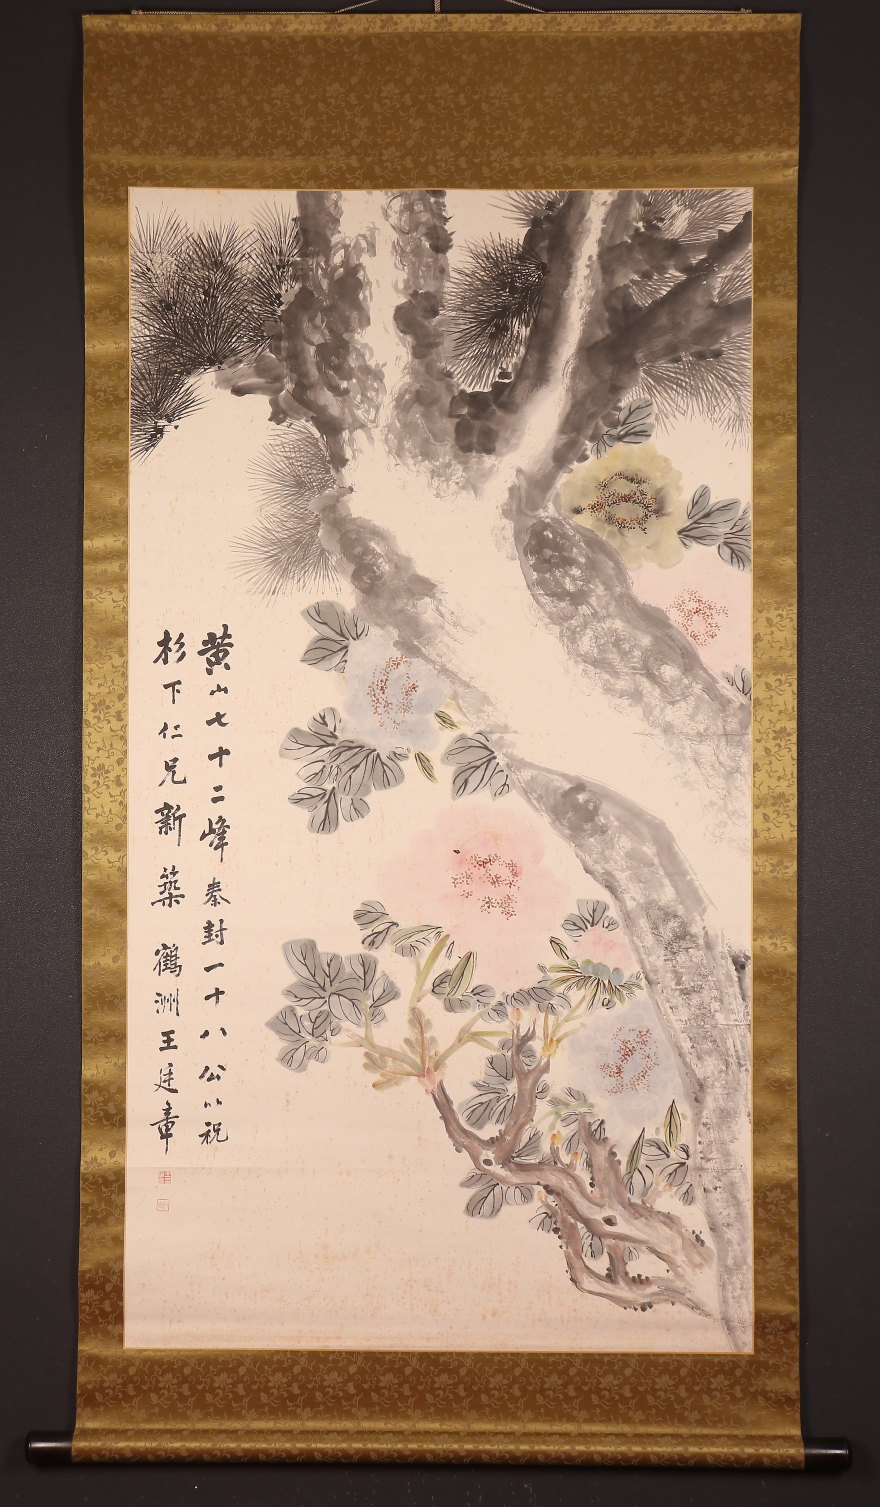 黄山七十二峰秦封一十八公以祝
杉下仁兄新築 鶴洲王廷章